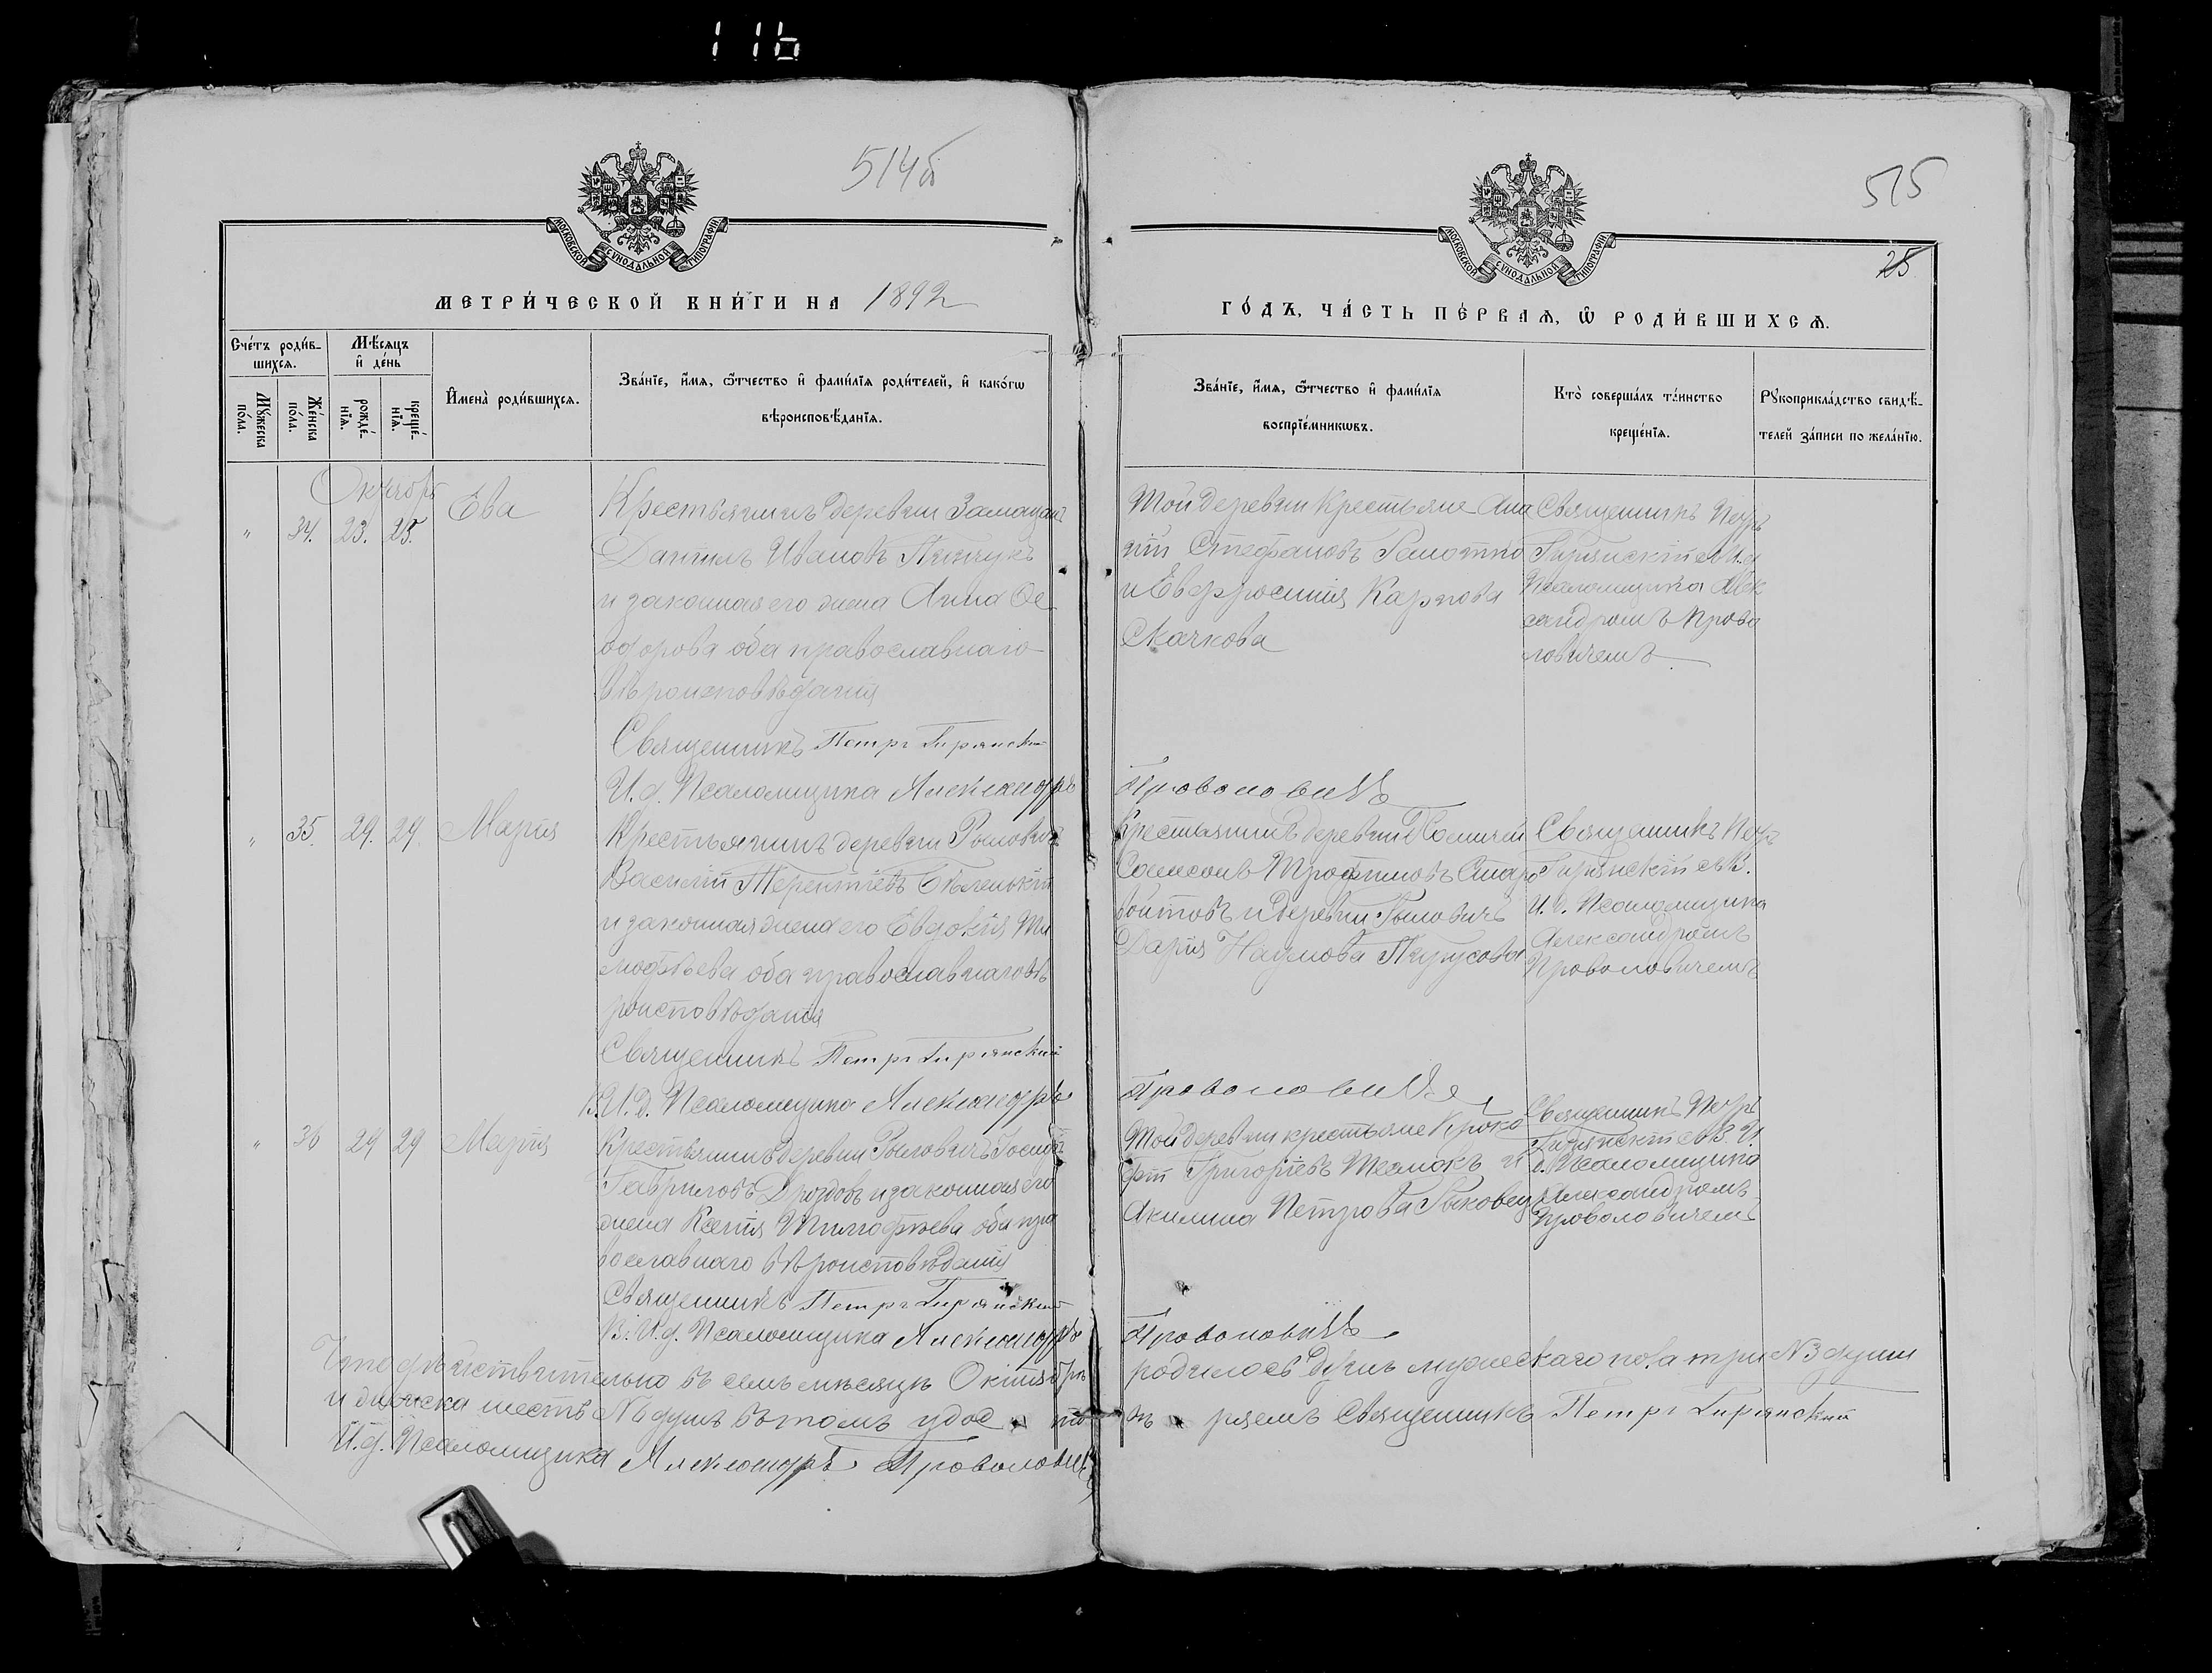 116
514б
515
25
МОСКОВСКОЙ СѴНОДАЛЬНОЙ ТИПОГРАФІИ
МОСКОВСКОЙ СѴНОДАЛЬНОЙ ТИПОГРАФІИ
МЕТРИ́ЧЕСКОЙ КНИ́ГИ НА 1892
ГО́ДЪ, ЧА́СТЬ ПЕ́РВАЯ, Ѡ҆ РОДИ́ВШИХСЯ.
Сче́тъ роди́в-
шихся.
Мѣ́сяцъ
и҆ де́нь
Мꙋ́жеска
по́ла.
Же́нска
по́ла.
рожде́-
нїя.
креще́-
нїя.
И҆мена̀ роди́вшихся.
Зва́нїе, и҆́мя, ѻ҆́тчество и҆ фами́лїя роди́телей, и҆ како́гѡ
вѣроисповѣ́данїя.
Зва́нїе, и҆́мя, ѻ҆́тчество и҆ фами́лїя
воспрїе́мникѡвъ.
Кто̀ соверша́лъ та́инство
креще́нїя.
Рꙋкоприкла́дство свидѣ́-
телей за́писи по жела́нїю.
Октябрь
" 34. 23. 25. Ева
Крестьянинъ деревни
Даніилъ Ивановъ
и законная его жена Анна Ѳе
одорова оба православнаго
вѣроисповѣданія
Священникъ Петръ Гирянскій
И. д. Псаломщика Александръ Проволовичъ
Той деревни крестьяне Ана
ній Стефановъ
и Евфросинія Карпова
Скачкова
Священникъ Петръ
Гирянскій съ И. д.
Псаломщика Алек
сандромъ Прово
ловичемъ
" 35. 29. 29. Марія
Крестьянинъ деревни Рыловичъ
Василій Терентіевъ Бѣленькій
и законная жена его Евдокія Ти
мофѣева оба православнаго вѣ
роисповѣданія
Священникъ Петръ Гирянскій
В. И. д. Псаломщика Александръ Проволовичъ
Крестьянинъ деревни
Самсонъ Трофимовъ Старо
войтовъ и деревни Рыловичъ
Дарія Наумова
Священникъ Петръ
Гирянскій съ В.
И. д. Псаломщика
Александромъ
Проволовичемъ
" 36 29 29 Марія
Крестьянинъ деревни Рыловичъ Іосифъ
Гавриловъ Дроздовъ и законная его
жена Ксенія Тимофѣева оба пра
вославнаго вѣроисповѣданія
Священникъ Петръ Гирянскій
В. И. д. Псаломщика Александръ Проволовичъ
Той деревни крестьяне Проко
фій Григоріевъ и
Акилина Петрова
Священникъ Петръ
Гирянскій съ В. И.
д. Псаломщика
Александромъ
Проволовичемъ
Что дѣйствительно въ семъ мѣсяцѣ Октябрѣ родилось душъ мужескаго пола три №3 души
и женска шесть №6 душъ въ томъ удостовѣряемъ Священникъ Петръ Гирянскій
И. д. Псаломщика Александръ Проволовичъ